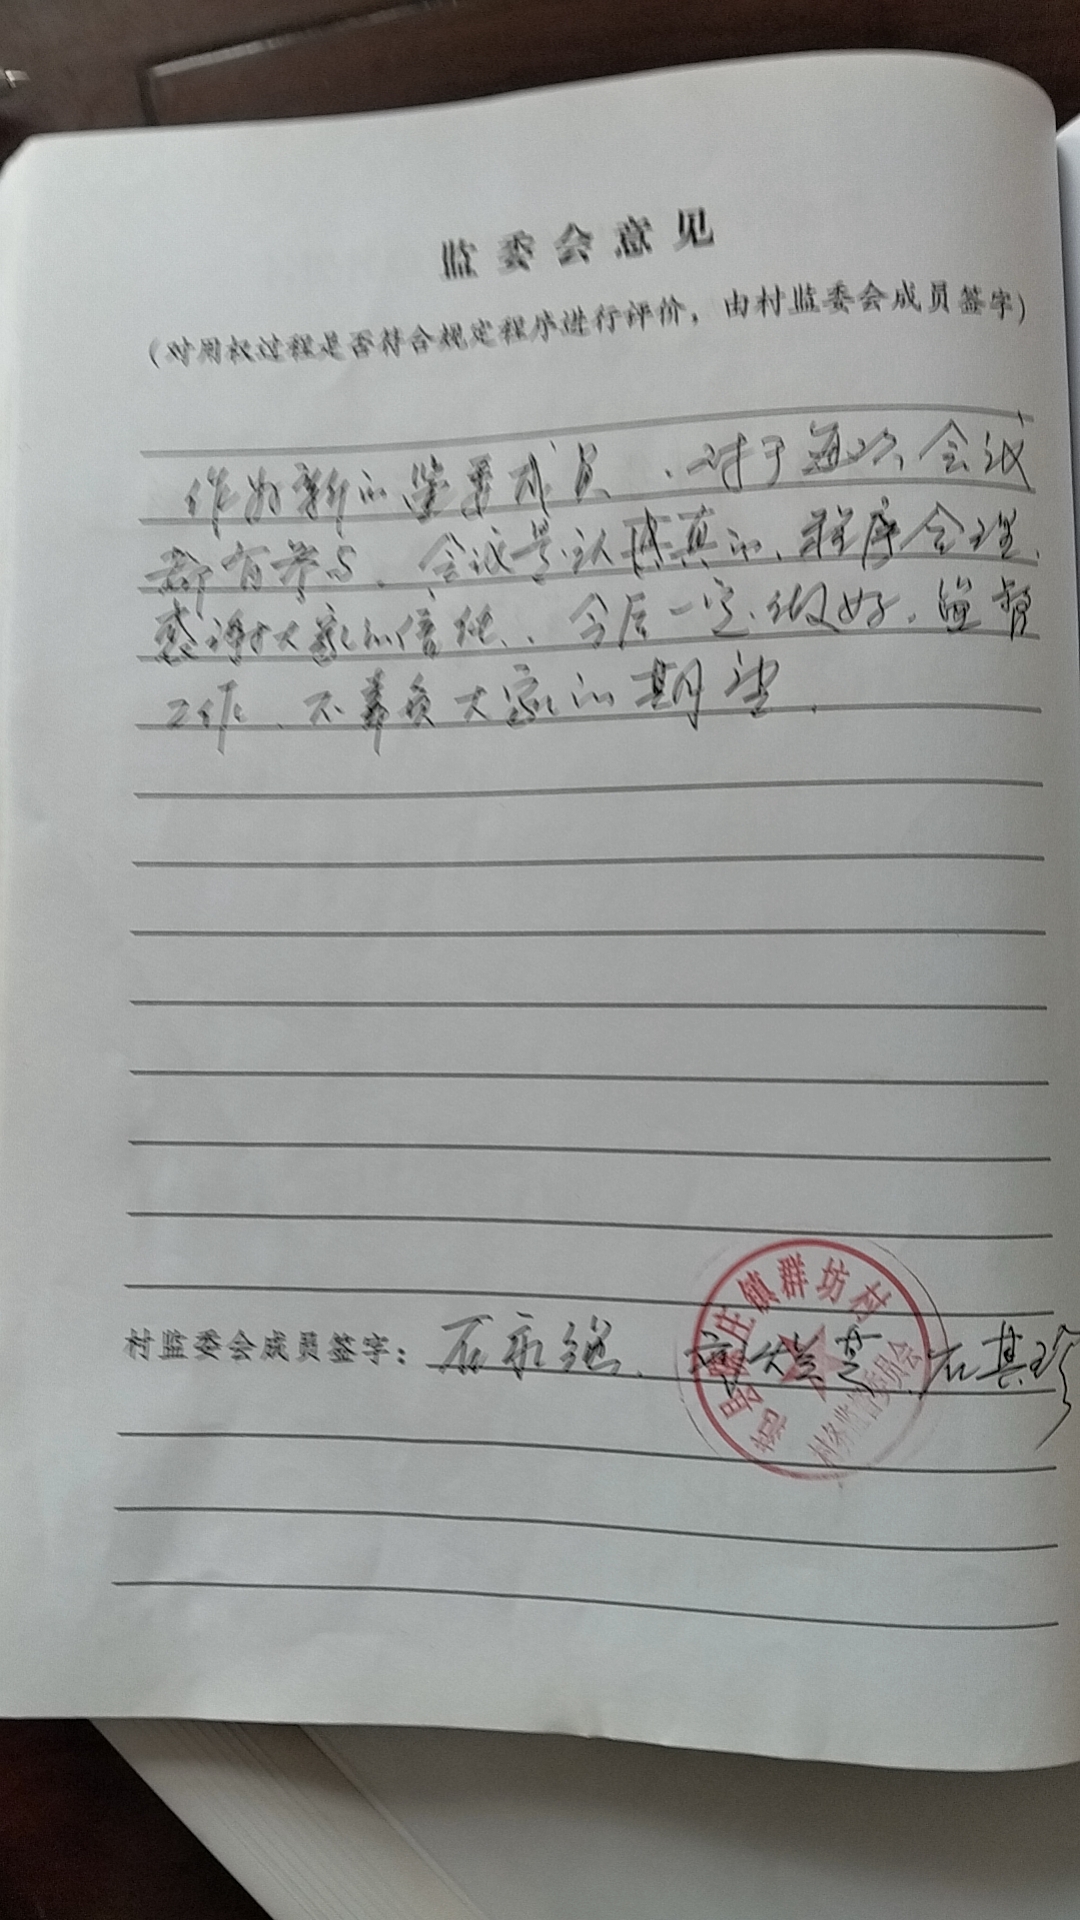 监委会意见
（对用权过程是否符合规定程序进行评价，由村监委会成员签字）
作为新的监委成员、对于每次会议
都有参与、会议是认真的、程序合理、
感谢大家的信任、今后一定做好监督
工作、不辜负大家的期望.
村监委会成员签字：石永铭、 石其珍
庄镇群坊村
村务监督委员会